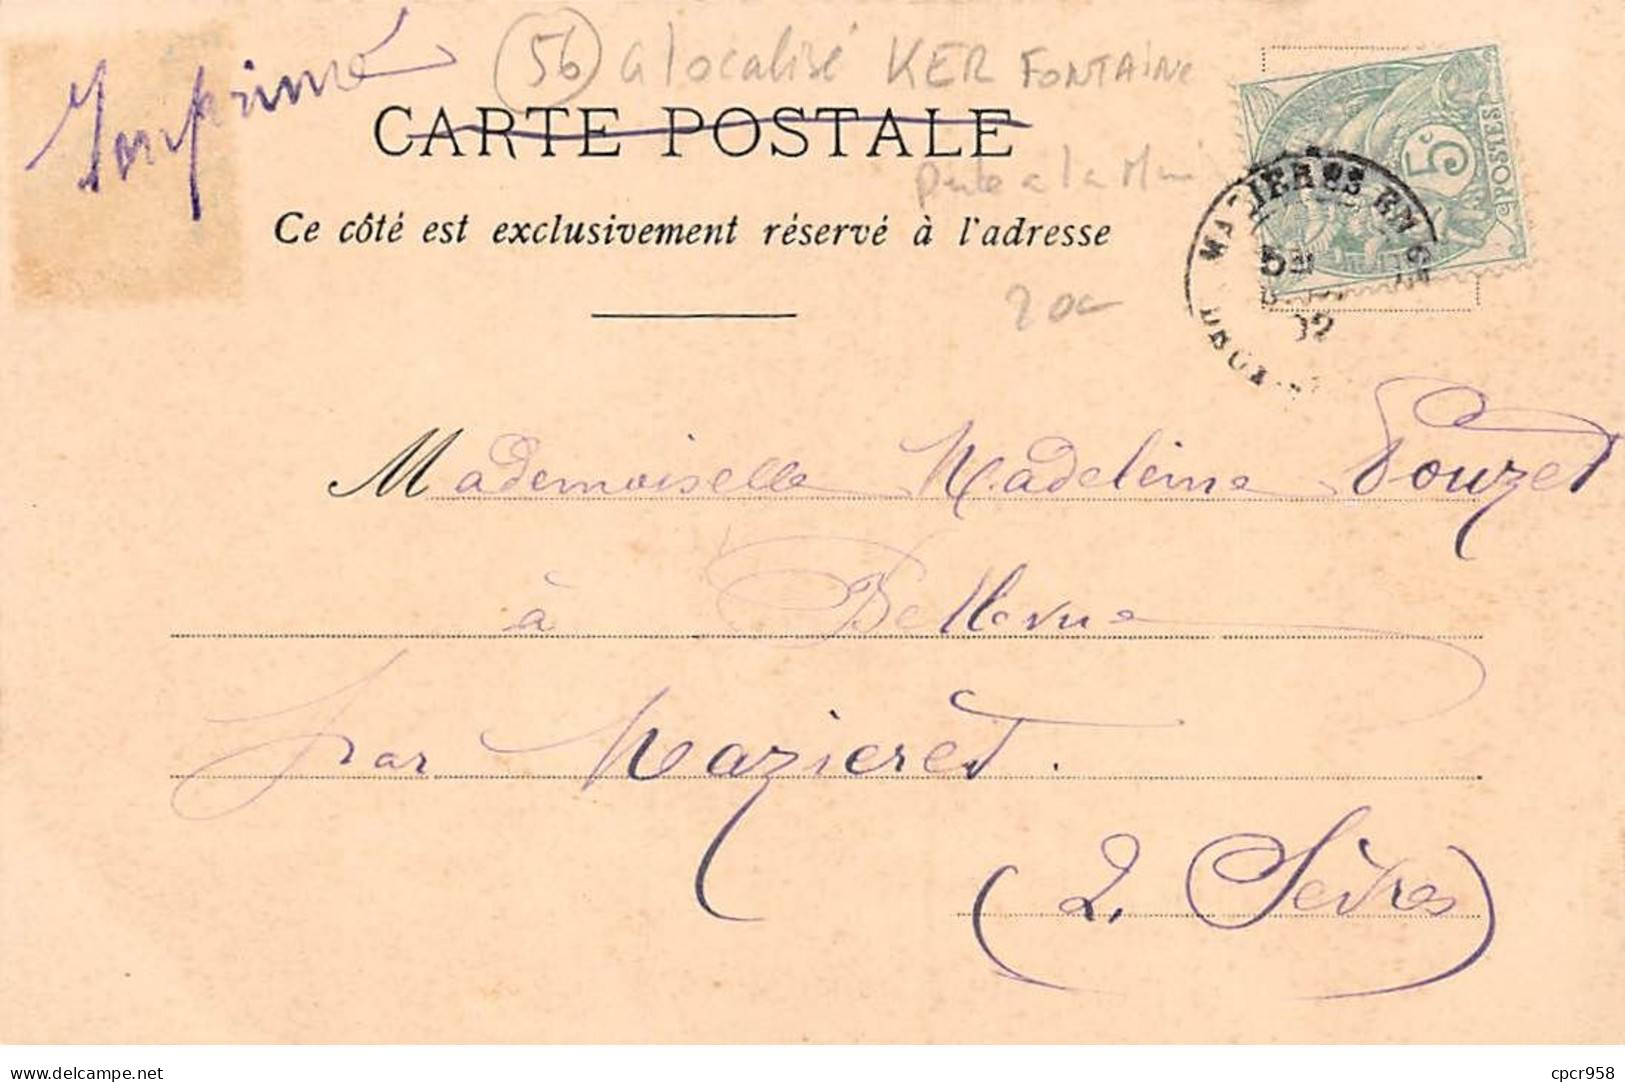 Imprimé
(56) a localisé KER FONTAINE
CARTE POSTALE
Ce côté est exclusivement réservé à l'adresse
5c
POSTES
MAZIERES EN G
02
Mademoiselle Madeleine Pouzet
à Bellevue
par Mazieres.
(2 Sèvres)
delcampe.net
cpcr958